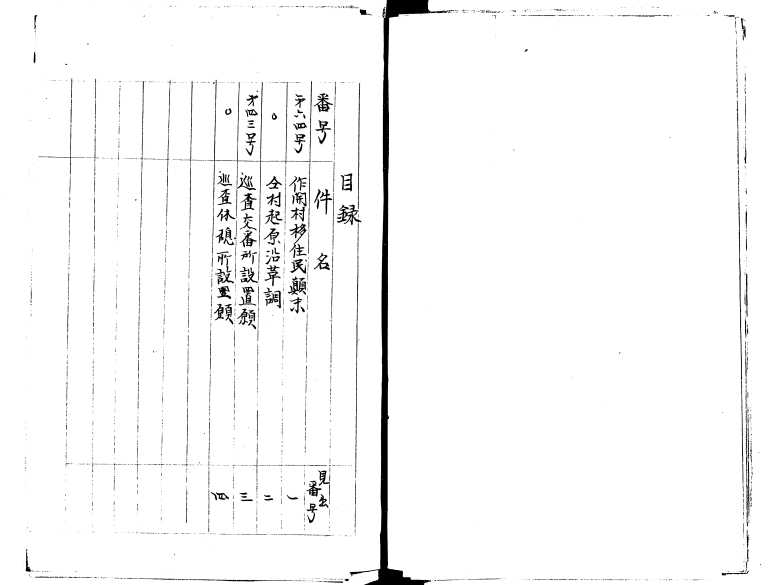 目録
番号 件名 見出番号
第六四号 作開村移住民顛末 一
〇 仝村起原沿革調 二
第四三号 巡査交番所設置願 三
〇 巡査休憩所設置願 四